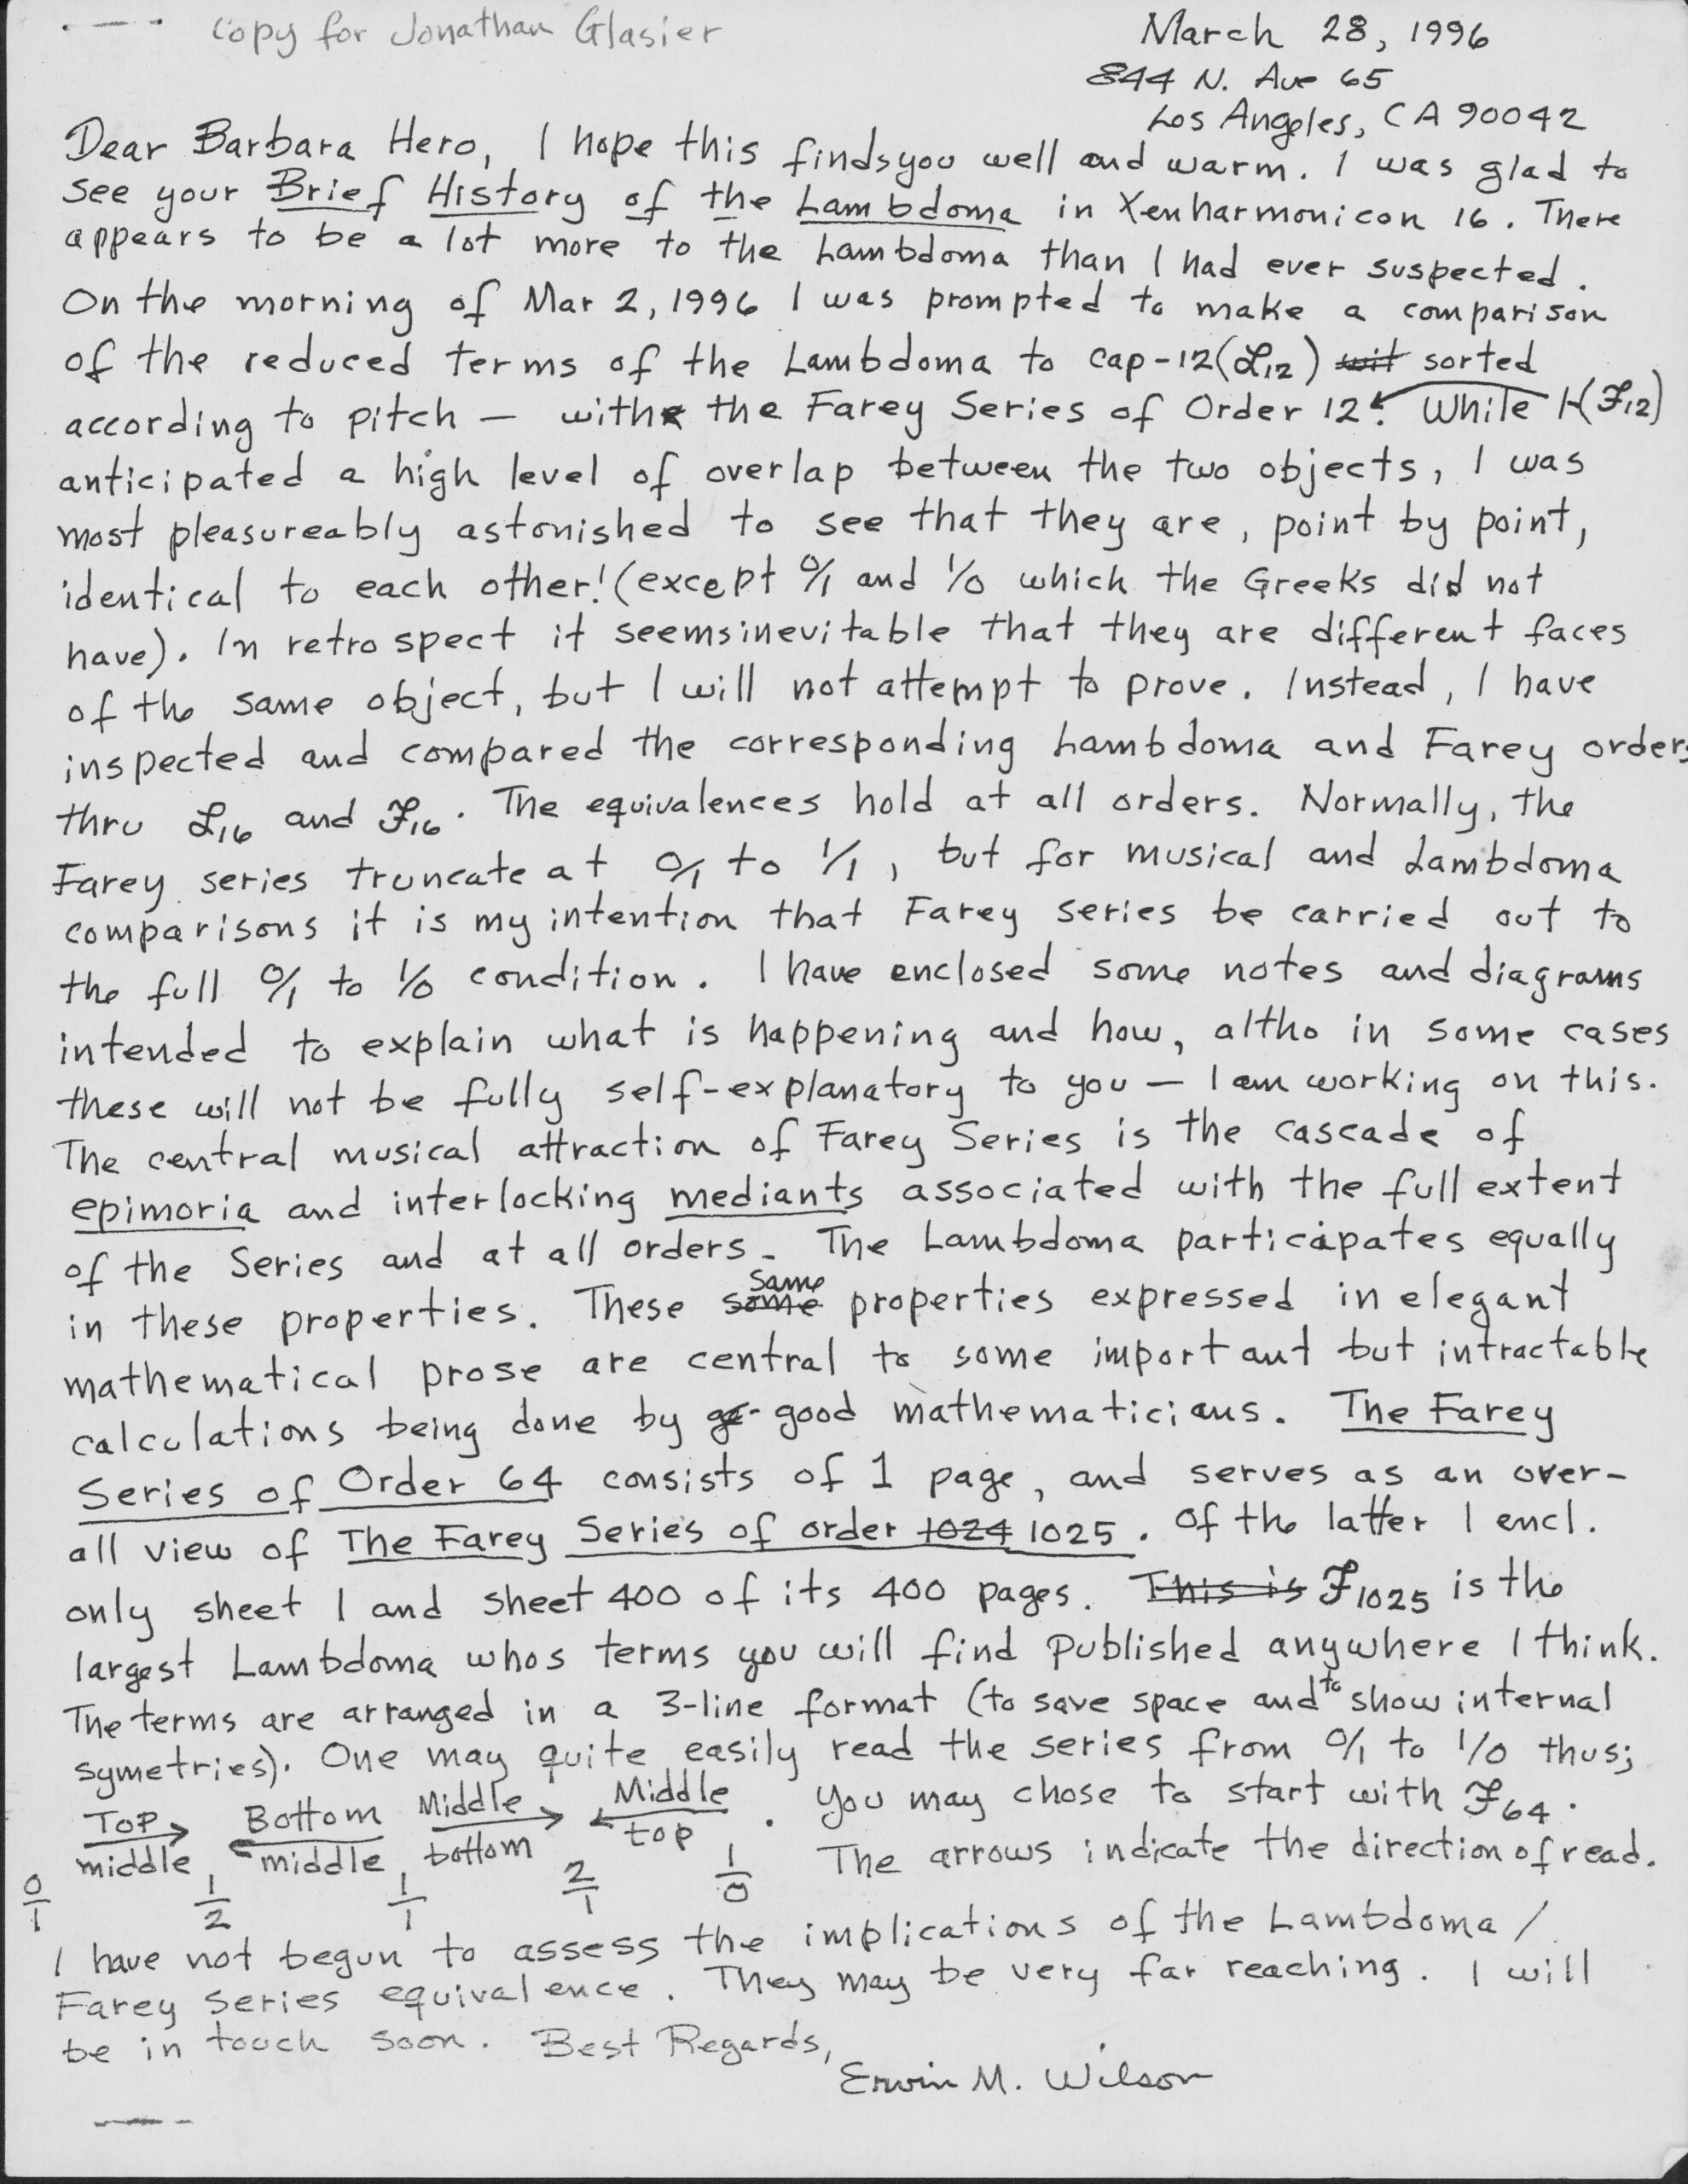 Copy for Jonathan Glasier
March 28, 1996
844 N. Ave 65
Los Angeles, CA 90042
Dear Barbara Hero, I hope this finds you well and warm. I was glad to
see your Brief History of the Lambdoma in Xenharmonicon 16. There
appears to be a lot more to the Lambdoma than I had ever suspected.
On the morning of Mar 2, 1996 I was prompted to make a comparison
of the reduced terms of the Lambdoma to cap-12 (ℒ12) wit sorted
according to pitch — with the Farey Series of Order 12. While I (ℱ12)
anticipated a high level of overlap between the two objects, I was
most pleasureably astonished to see that they are, point by point,
identical to each other! (except 0/1 and 1/0 which the Greeks did not
have). In retrospect it seems inevitable that they are different faces
of the same object, but I will not attempt to prove. Instead, I have
inspected and compared the corresponding Lambdoma and Farey orders
thru ℒ16 and ℱ16. The equivalences hold at all orders. Normally, the
Farey series truncate at 0/1 to 1/1, but for musical and Lambdoma
comparisons it is my intention that Farey series be carried out to
the full 0/1 to 1/0 condition. I have enclosed some notes and diagrams
intended to explain what is happening and how, altho in some cases
these will not be fully self-explanatory to you — I am working on this.
The central musical attraction of Farey Series is the cascade of
epimoria and interlocking mediants associated with the full extent
of the Series and at all orders. The Lambdoma participates equally
in these properties. These some same properties expressed in elegant
mathematical prose are central to some important but intractable
calculations being done by good mathematicians. The Farey
Series of Order 64 consists of 1 page, and serves as an over-
all view of The Farey Series of order 1024 1025. Of the latter I encl.
only sheet 1 and sheet 400 of its 400 pages. This is ℱ1025 is the
largest Lambdoma whos terms you will find published anywhere I think.
The terms are arranged in a 3-line format (to save space and to show internal
symetries). One may quite easily read the series from 0/1 to 1/0 thus;
Top → Bottom Middle → Middle
middle, ← middle, bottom ← top. You may chose to start with ℱ64.
0/1 1/2 1/1 2/1 1/0 The arrows indicate the direction of read.
I have not begun to assess the implications of the Lambdoma/
Farey series equivalence. They may be very far reaching. I will
be in touch soon. Best Regards,
Ervin M. Wilson